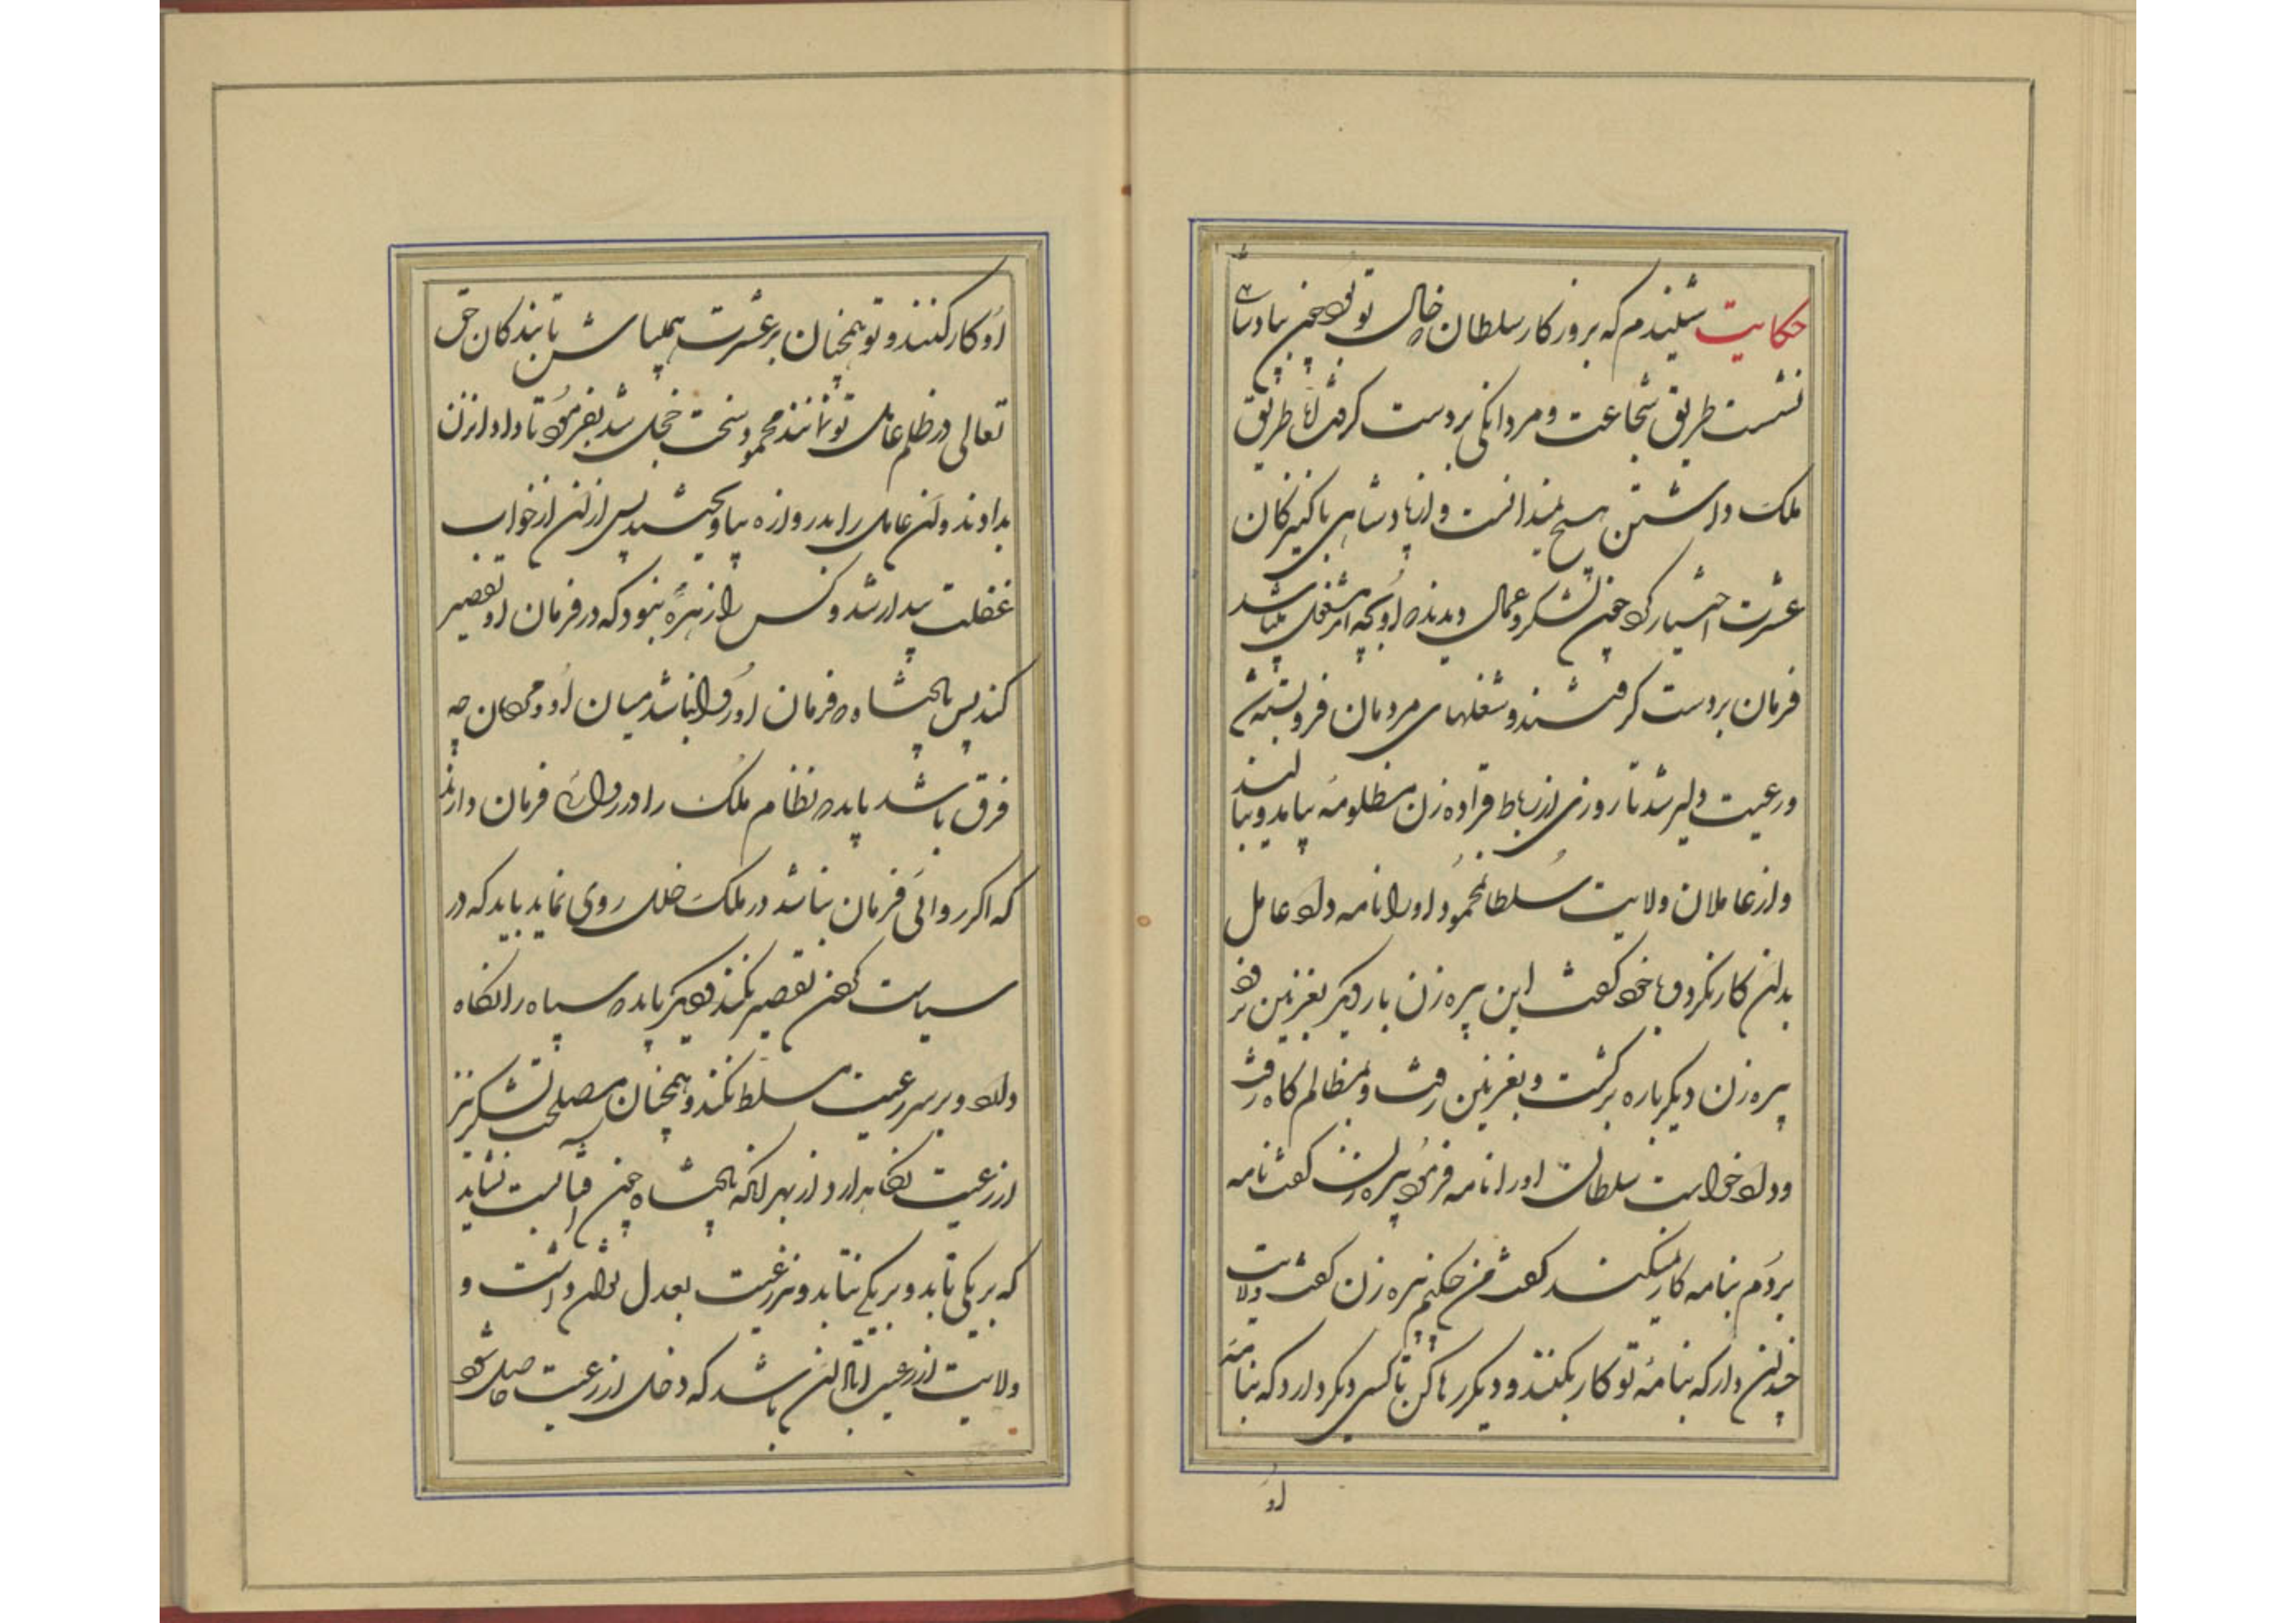 حکایت شنیدم که بروزکار سلطان خال تو بود چون بپادشاهی
نشست طریق شجاعت و مردانکی بردست کرفت اما طریق
ملک داشتن هیچ نمیدانست و از پادشاهی با کنیزکان
عشرت اختیار کرد چون لشکر و عمال دیدند که او بچه امر مشغول میباشد
فرمان بردست کرفتند و شغلهای مردمان فروبسته شد
و رعیت دلیر شد تا روزی از رباط فراوه زن مظلومه بیامد و بنالید
و از عاملان ولایت سلطان محمود او را نامه داد عامل
بدان کار نکرد و با خود کفت این پیره زن بار دیکر بغزنین نرود
پیره زن دیکرباره برکشت و بغزنین رفت و بمظالم کاه رفت
و داد خواست سلطان او را نامه فرمود پیره زن کفت نامه
بردم بنامه کار نمیکند کفت من چکنم پیره زن کفت ولایت
چندان دار که بنامهٔ تو کار بکنند و دیکر رها کن تا کسی دیکر دارد که بنامهٔ
او
او کار کنند و تو همچنان بر عشرت همی باش تا بندکان حق
تعالی در ظلم عامل تو نمانند محمود سخت خجل شد بفرمود تا داد آن زن
بدادند و آن عامل را بدروازه بیاویختند پس از آن از خواب
غفلت بیدار شد و کس را زهرهٔ نبود که در فرمان او تقصیر
کند پس پادشاه که فرمان او روا نباشد میان او و مردمان چه
فرق باشد باید که نظام ملک را در روائی فرمان دارند
که اکر روائی فرمان نباشد در ملک خلل روی نماید باید که در
سیاست کردن تقصیر نکند و دیکر باید که سپاه را نکاه
دارد و بر سر رعیت مسلط نکند و همچنان مصلحت لشکر نیز
از رعیت نکاهدارد از بهر آنکه پادشاه چون آفتابست نشاید
که بر یکی تابد و بر یکی نتابد و نیز رعیت بعدل توان داشت و
ولایت از رعیت آبادان باشد که دخل از رعیت حاصل شود